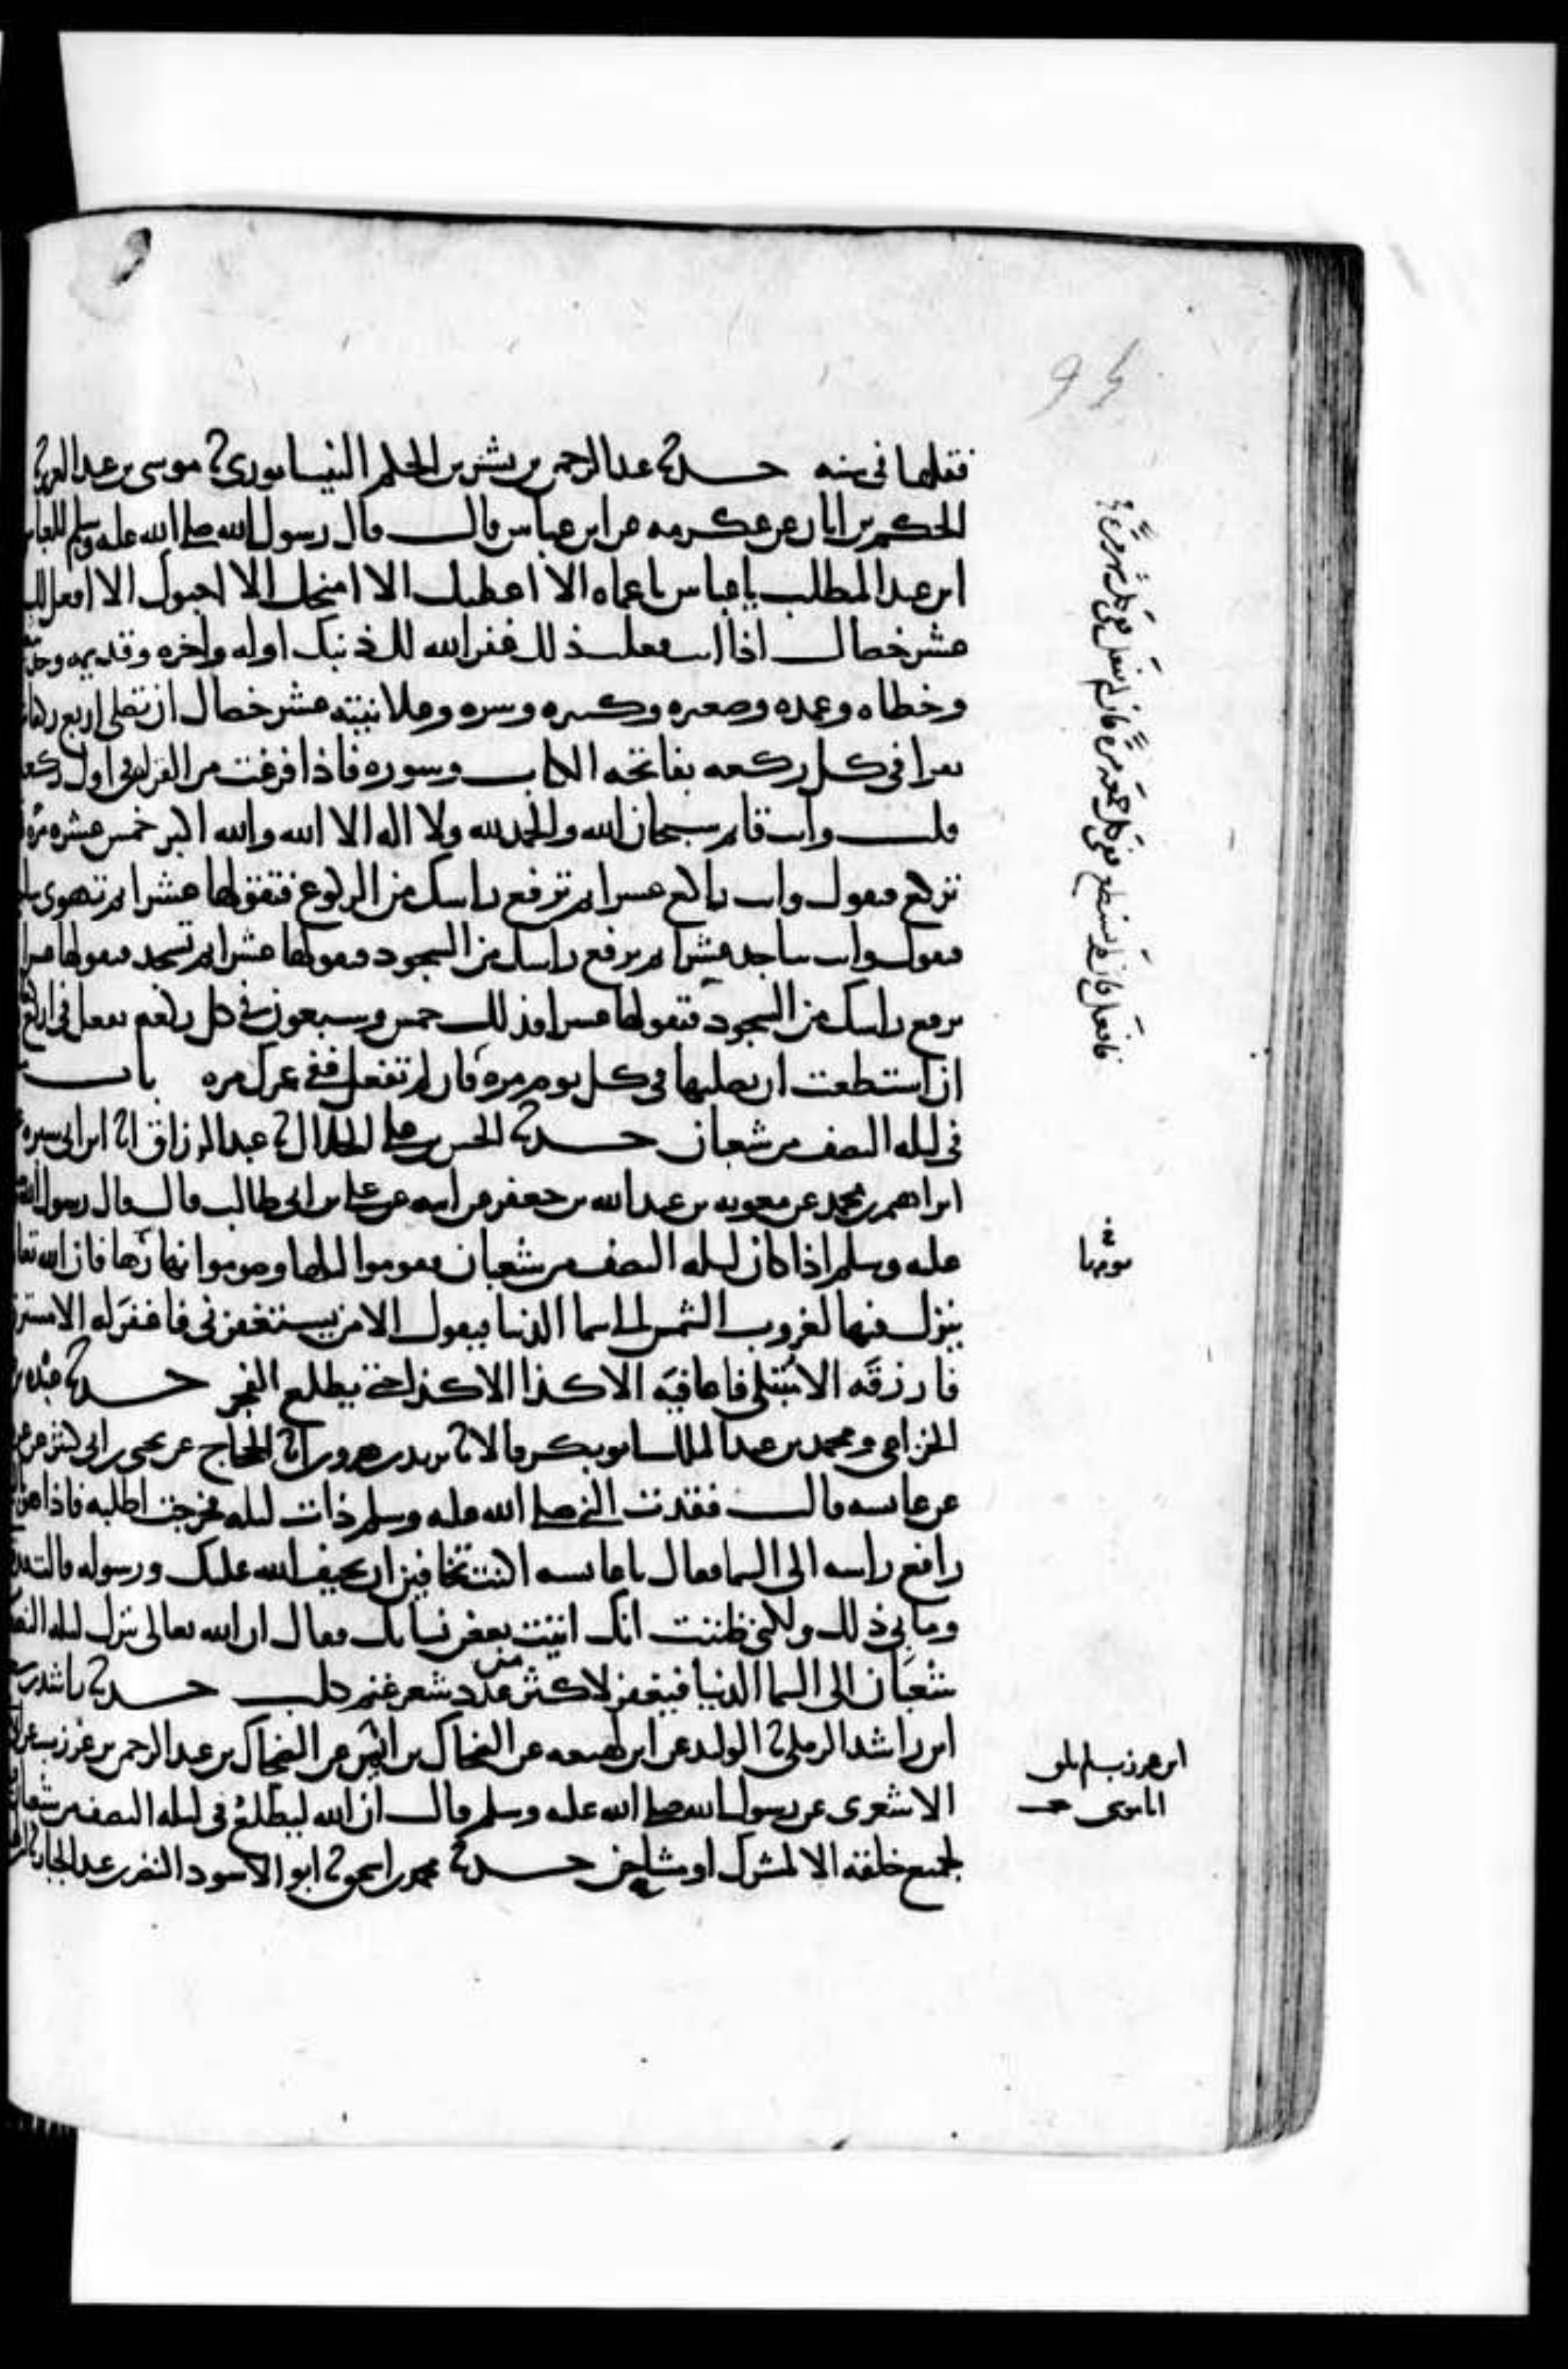 فقلها في سنه حدثنا عبد الرحمن بن بشر بن الحكم النيسابوري ثنا موسى بن عبد العزيز ثنا
الحكم بن ابان عن عكرمه عن ابن عباس قال قال رسول الله صلى الله عليه وسلم للعباس
ابن عبد المطلب يا عباس يا عماه الا اعطيك الا امنحك الا احبوك الا افعل لك
عشر خصال اذا انت فعلت ذلك غفر الله لك ذنبك اوله واخره وقديمه
وخطاه وعمده وصغيره وكبيره وسره وعلانيته عشر خصال ان تصلي اربع ركعات
تقرا في كل ركعه بفاتحه الكتاب وسوره فاذا فرغت من القراه في اول ركعه
قلت وانت قائم سبحان الله والحمد لله ولا اله الا الله والله اكبر خمس عشره مره
تركع فتقول وانت راكع عشرا ثم ترفع راسك من الركوع فتقولها عشرا ثم تهوي
فتقول وانت ساجد عشرا ثم ترفع راسك من السجود فتقولها عشرا ثم تسجد فتقولها عشرا
ترفع راسك من السجود فتقولها عشرا فذلك خمس وسبعون في كل ركعه تفعل في اربع
ان استطعت ان تصليها في كل يوم مره فان لم تفعل ففي عمرك مره باب
في ليله النصف من شعبان حدثنا الحسن بن علي الخلال ثنا عبد الرزاق انا ابن ابي سبره
ابراهيم بن محمد عن معويه بن عبد الله بن جعفر عن ابيه عن علي بن ابي طالب قال قال رسول الله
عليه وسلم اذا كان ليله النصف من شعبان فقوموا ليلها وصوموا نهارها فان الله تعالى
ينزل فيها لغروب الشمس الى سما الدنيا فيقول الا من يستغفرني فاغفر له الا مسترزق
فارزقه الا مبتلى فاعافيه الا كذا الا كذا حتى يطلع الفجر حدثنا عبده بن
الخزاعي ومحمد بن عبد الملك ابو بكر قالا ثنا يزيد بن هرون انا الحجاج عن يحيى بن ابي كثير عن
عن عايشه قالت فقدت النبي صلى الله عليه وسلم ذات ليله فخرجت اطلبه فاذا هو
رافع راسه الى السما فقال يا عايشه اكنت تخافين ان يحيف الله عليك ورسوله قالت قد
وما بي ذلك ولكني ظننت انك اتيت بعض نسايك فقال ان الله تعالى ينزل ليله النصف
شعبان الى السما الدنيا فيغفر لاكثر من عدد شعر غنم كلب حدثنا راشد بن
ابن راشد الرملي ثنا الوليد عن ابن لهيعه عن الضحاك بن ايمن عن الضحاك بن عبد الرحمن بن عرزب عن
الاشعري عن رسول الله صلى الله عليه وسلم قال ان الله ليطلع في ليله النصف من شعبان
لجميع خلقه الا لمشرك او مشاحن حدثنا محمد بن اسحق ثنا ابو الاسود النضر بن عبد الجبار ثنا
فافعل فان لم تستطع ففي كل جمعه مره فان لم تفعل ففي كل شهر مره
يومها
ابن عرزب لم يلق
ابا موسى